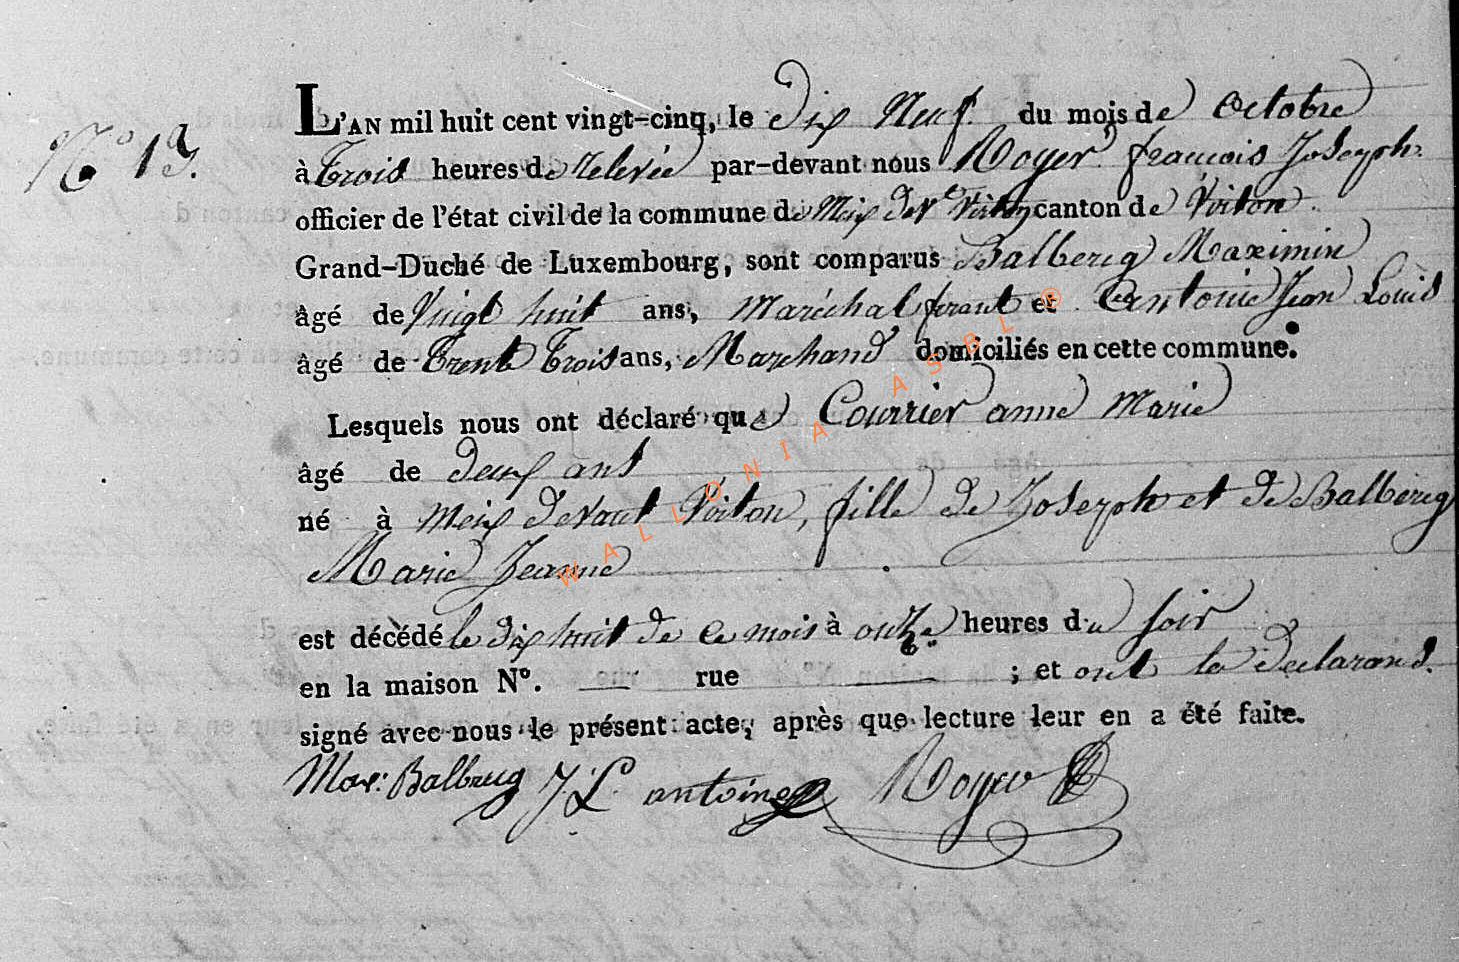 N° 13.
L'AN mil huit cent vingt-cinq, le Dix Neuf du mois de Octobre
à Trois heures de Relevée par-devant nous Royer francois Joseph
officier de l'état civil de la commune de Meix devt Virton canton de Virton
Grand-Duché de Luxembourg, sont comparus Balbericq Maximin
âgé de Vingt huit ans, Maréchal ferant et Antoine Jean Louis
âgé de Trente Trois ans, Marchand domiciliés en cette commune.
Lesquels nous ont déclaré que Courrier anne Marie
âgé de deux ans
né à Meix devant Virton, fille de Joseph et de Balbericq
Marie Jeanne
est décédé le dix huit de ce mois à onze heures du soir
en la maison N°. — rue — ; et ont les declarans
signé avec nous le présent acte, après que lecture leur en a été faite.
Max: Balbreug J. L. antoine Royer
WALLONIA ASBL ®